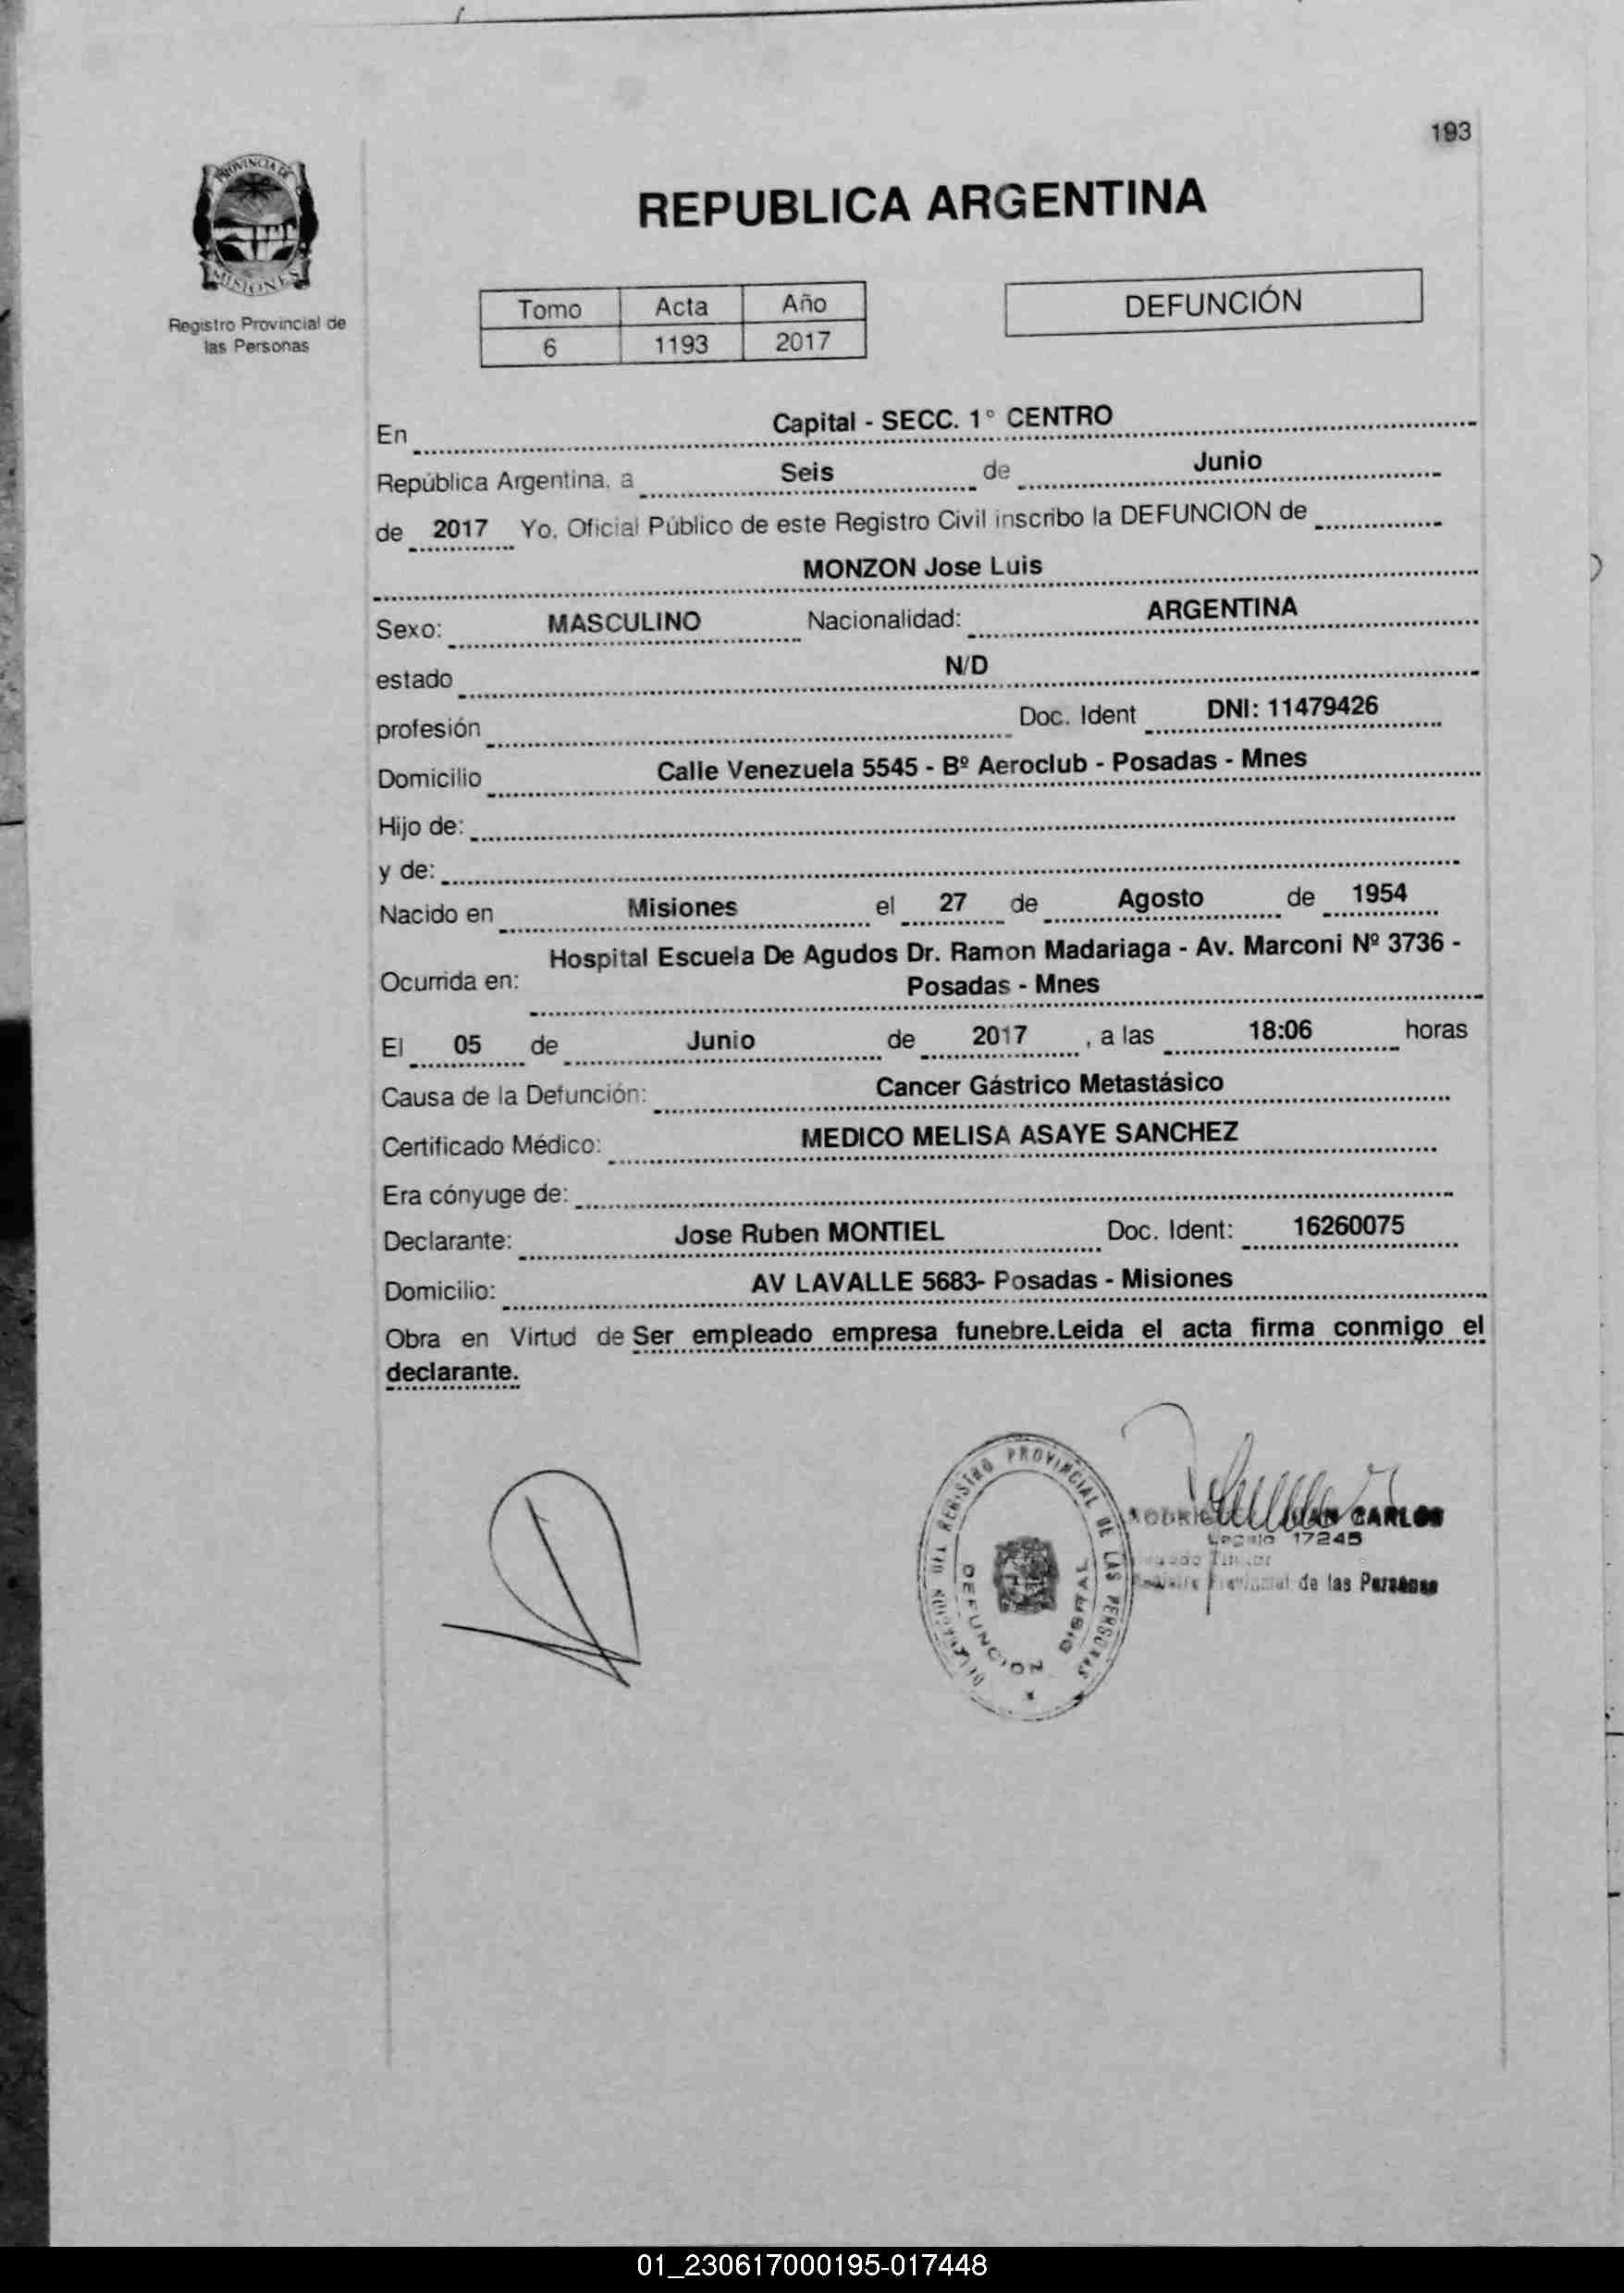 193
PROVINCIA DE
MISIONES
Registro Provincial de
las Personas
REPUBLICA ARGENTINA
Tomo Acta Año
6 1193 2017
DEFUNCIÓN
En Capital - SECC. 1° CENTRO
República Argentina, a Seis de Junio
de 2017 Yo, Oficial Público de este Registro Civil inscribo la DEFUNCION de
MONZON Jose Luis
Sexo: MASCULINO Nacionalidad: ARGENTINA
estado N/D
profesión Doc. Ident DNI: 11479426
Domicilio Calle Venezuela 5545 - Bº Aeroclub - Posadas - Mnes
Hijo de:
y de:
Nacido en Misiones el 27 de Agosto de 1954
Hospital Escuela De Agudos Dr. Ramon Madariaga - Av. Marconi Nº 3736 -
Ocurrida en: Posadas - Mnes
El 05 de Junio de 2017 , a las 18:06 horas
Causa de la Defunción: Cancer Gástrico Metastásico
Certificado Médico: MEDICO MELISA ASAYE SANCHEZ
Era cónyuge de:
Declarante: Jose Ruben MONTIEL Doc. Ident: 16260075
Domicilio: AV LAVALLE 5683- Posadas - Misiones
Obra en Virtud de Ser empleado empresa funebre.Leida el acta firma conmigo el
declarante.
DEL REGISTRO PROVINCIAL DE LAS PERSONAS
DEFUNCION DIGITAL
CARLOS
17245
de las Personas
01_230617000195-017448